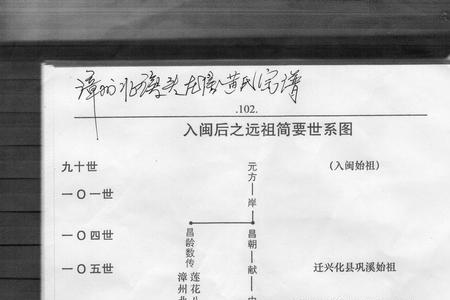 漳州 黄氏宗谱
.102.
入闽后之远祖简要世系图
九十世 元方 (入闽始祖)
一〇一世 岸
一〇四世 昌朝
一〇五世 献 迁兴化县巩溪始祖
昌龄数传
莲花
漳州